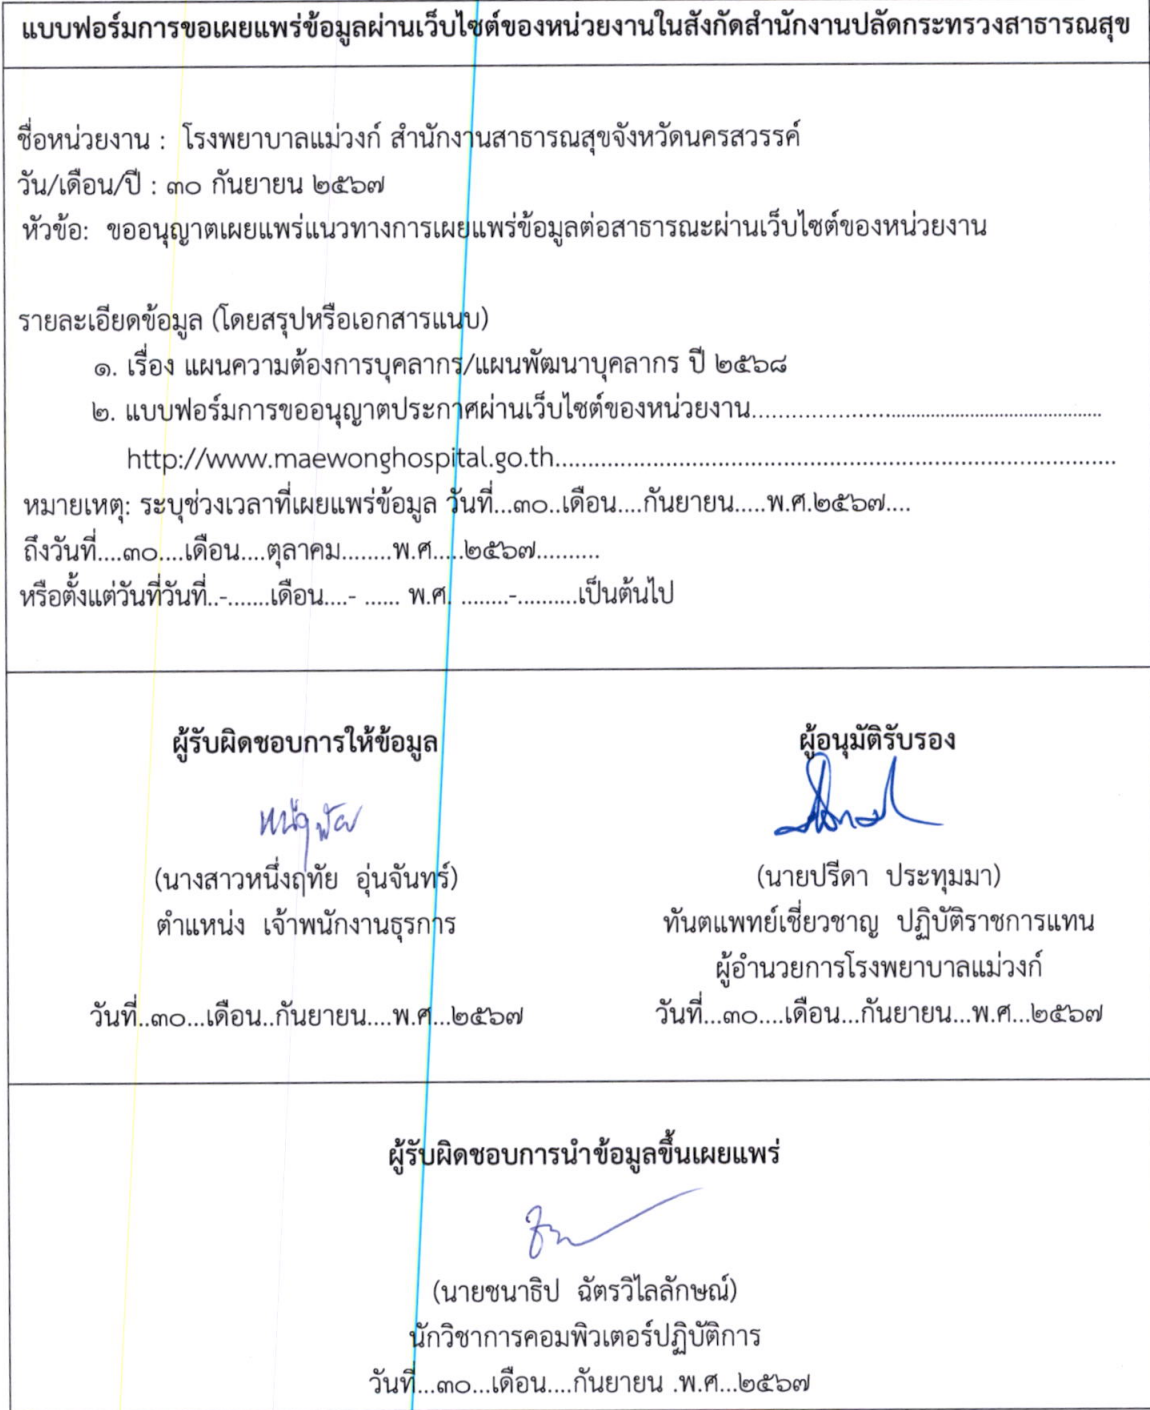 แบบฟอร์มการขอเผยแพร่ข้อมูลผ่านเว็บไซต์ของหน่วยงานในสังกัดสำนักงานปลัดกระทรวงสาธารณสุข
ชื่อหน่วยงาน : โรงพยาบาลแม่วงก์ สำนักงานสาธารณสุขจังหวัดนครสวรรค์
วัน/เดือน/ปี : ๓๐ กันยายน ๒๕๖๗
หัวข้อ: ขออนุญาตเผยแพร่แนวทางการเผยแพร่ข้อมูลต่อสาธารณะผ่านเว็บไซต์ของหน่วยงาน
รายละเอียดข้อมูล (โดยสรุปหรือเอกสารแนบ)
๑. เรื่อง แผนความต้องการบุคลากร/แผนพัฒนาบุคลากร ปี ๒๕๖๘
๒. แบบฟอร์มการขออนุญาตประกาศผ่านเว็บไซต์ของหน่วยงาน......................................................
http://www.maewonghospital.go.th....................................................................................
หมายเหตุ: ระบุช่วงเวลาที่เผยแพร่ข้อมูล วันที่...๓๐..เดือน....กันยายน.....พ.ศ.๒๕๖๗....
ถึงวันที่....๓๐....เดือน....ตุลาคม........พ.ศ.....๒๕๖๗..........
หรือตั้งแต่วันที่วันที่..-.......เดือน....- ...... พ.ศ. ........-..........เป็นต้นไป
ผู้รับผิดชอบการให้ข้อมูล
หนึ่งฤทัย
(นางสาวหนึ่งฤทัย อุ่นจันทร์)
ตำแหน่ง เจ้าพนักงานธุรการ
วันที่..๓๐...เดือน..กันยายน....พ.ศ...๒๕๖๗
ผู้อนุมัติรับรอง
(นายปรีดา ประทุมมา)
ทันตแพทย์เชี่ยวชาญ ปฏิบัติราชการแทน
ผู้อำนวยการโรงพยาบาลแม่วงก์
วันที่...๓๐....เดือน...กันยายน...พ.ศ...๒๕๖๗
ผู้รับผิดชอบการนำข้อมูลขึ้นเผยแพร่
(นายชนาธิป ฉัตรวิไลลักษณ์)
นักวิชาการคอมพิวเตอร์ปฏิบัติการ
วันที่...๓๐...เดือน....กันยายน .พ.ศ...๒๕๖๗